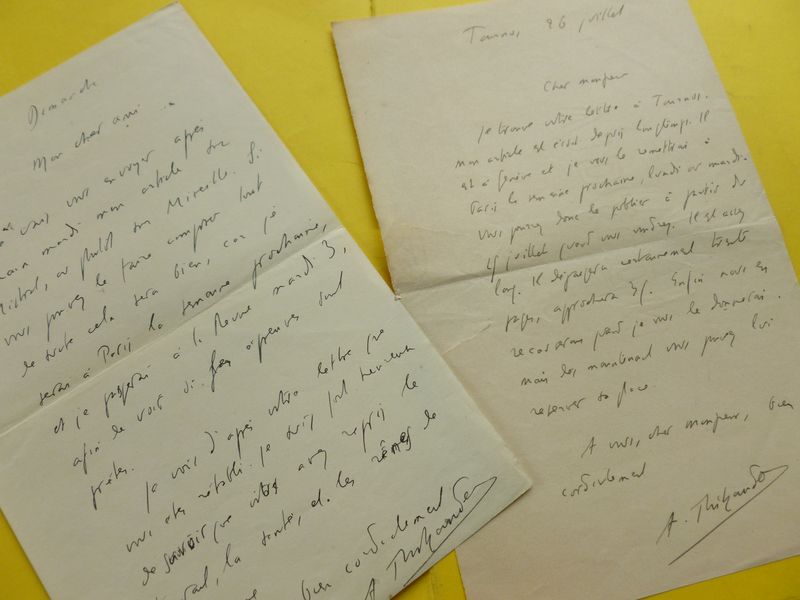 Dimanche
Mon cher ami
Je vais vous envoyer après
demain mardi mon article sur
Mistral, ou plutôt sur Mireille. Si
vous pouvez le faire composer tout
de suite cela sera bien, car je
serai à Paris la semaine prochaine,
et je passerai à la Revue mardi 3,
afin de voir si les épreuves sont
prêtes.
Je vois d'après votre lettre que
vous êtes rétabli. Je suis fort heureux
de savoir que vous avez repris le
travail, la santé, et les rênes de
bien cordialement
A Thibaudet
Tournus, 26 juillet
Cher monsieur
Je trouve votre lettre à Tournus.
Mon article est écrit depuis longtemps. Il
est à Genève et je vous le remettrai à
Paris la semaine prochaine, lundi ou mardi.
Vous pouvez donc le publier à partir du
15 juillet quand vous voudrez. Il est assez
long. Il dépassera certainement trente
pages, approchera 35. Enfin nous en
recauserons quand je vous le donnerai.
Mais dès maintenant vous pouvez lui
réserver sa place.
A vous, cher monsieur, bien
cordialement
A. Thibaudet